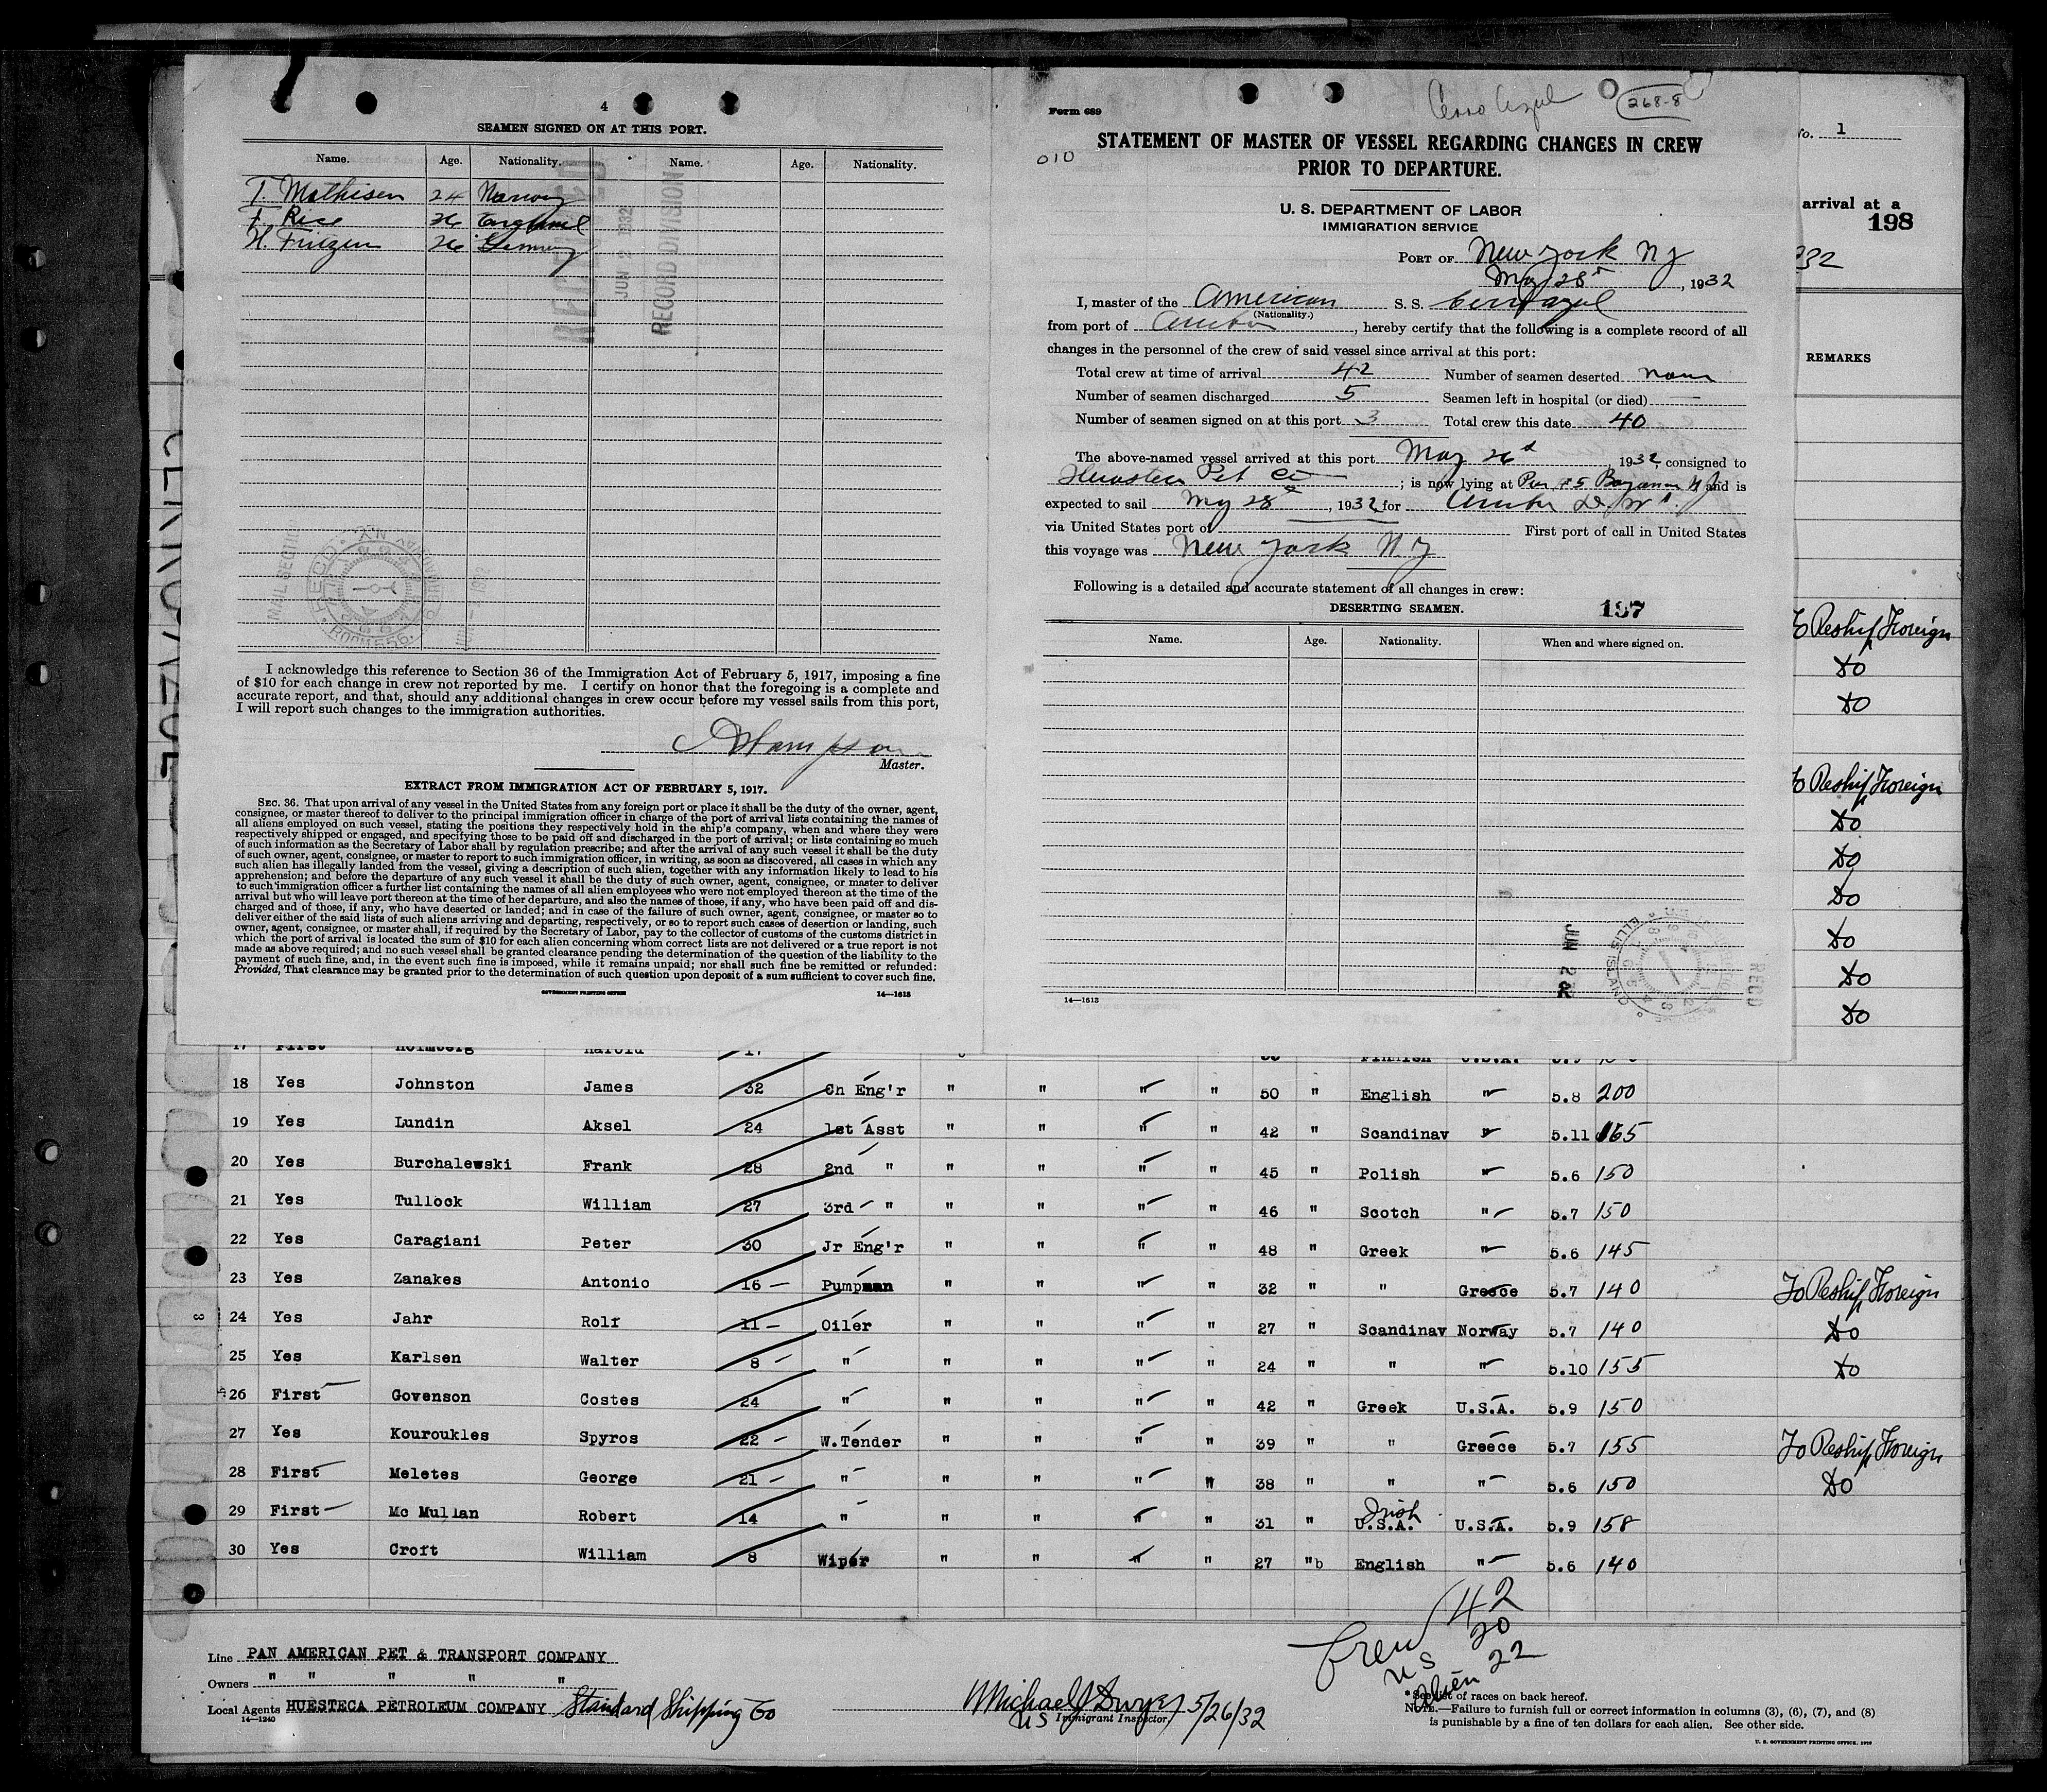 4
SEAMEN SIGNED ON AT THIS PORT.
Name. Age. Nationality. Name. Age. Nationality.
T. Mathisen 24 Norway
F. Rice 26 England
H. Fritzen 26 Germany
RECEIVED
JUN 2 1932
RECORD DIVISION
MAIL SECTION
REC'D.
ROOM 556.
I acknowledge this reference to Section 36 of the Immigration Act of February 5, 1917, imposing a fine
of $10 for each change in crew not reported by me. I certify on honor that the foregoing is a complete and
accurate report, and that, should any additional changes in crew occur before my vessel sails from this port,
I will report such changes to the immigration authorities.
Master.
EXTRACT FROM IMMIGRATION ACT OF FEBRUARY 5, 1917.
SEC. 36. That upon arrival of any vessel in the United States from any foreign port or place it shall be the duty of the owner, agent,
consignee, or master thereof to deliver to the principal immigration officer in charge of the port of arrival lists containing the names of
all aliens employed on such vessel, stating the positions they respectively hold in the ship's company, when and where they were
respectively shipped or engaged, and specifying those to be paid off and discharged in the port of arrival; or lists containing so much
of such information as the Secretary of Labor shall by regulation prescribe; and after the arrival of any such vessel it shall be the duty
of such owner, agent, consignee, or master to report to such immigration officer, in writing, as soon as discovered, all cases in which any
such alien has illegally landed from the vessel, giving a description of such alien, together with any information likely to lead to his
apprehension; and before the departure of any such vessel it shall be the duty of such owner, agent, consignee, or master to deliver
to such immigration officer a further list containing the names of all alien employees who were not employed thereon at the time of the
arrival but who will leave port thereon at the time of her departure, and also the names of those, if any, who have been paid off and dis-
charged and of those, if any, who have deserted or landed; and in case of the failure of such owner, agent, consignee, or master so to
deliver either of the said lists of such aliens arriving and departing, respectively, or so to report such cases of desertion or landing, such
owner, agent, consignee, or master shall, if required by the Secretary of Labor, pay to the collector of customs of the customs district in
which the port of arrival is located the sum of $10 for each alien concerning whom correct lists are not delivered or a true report is not
made as above required; and no such vessel shall be granted clearance pending the determination of the question of the liability to the
payment of such fine, and, in the event such fine is imposed, while it remains unpaid; nor shall such fine be remitted or refunded:
Provided, That clearance may be granted prior to the determination of such question upon deposit of a sum sufficient to cover such fine.
GOVERNMENT PRINTING OFFICE 14—1613
Form 689
Cerro Azul 268-8
010
STATEMENT OF MASTER OF VESSEL REGARDING CHANGES IN CREW
PRIOR TO DEPARTURE.
U. S. DEPARTMENT OF LABOR
IMMIGRATION SERVICE
PORT OF New York N Y
May 28, 1932
I, master of the American S. S. Cerro Azul
(Nationality.)
from port of Aruba, hereby certify that the following is a complete record of all
changes in the personnel of the crew of said vessel since arrival at this port:
Total crew at time of arrival 42 Number of seamen deserted none
Number of seamen discharged 5 Seamen left in hospital (or died) —
Number of seamen signed on at this port 3 Total crew this date 40
The above-named vessel arrived at this port May 26, 1932, consigned to
Pet Co; is now lying at Pier #5 Bayonne N J and is
expected to sail May 28, 1932, for Aruba D. W. I.
via United States port of First port of call in United States
this voyage was New York N Y
Following is a detailed and accurate statement of all changes in crew:
DESERTING SEAMEN. 197
Name. Age. Nationality. When and where signed on.
JUN 2
ELLIS ISLAND
RECD
14—1613
No. 1
arrival at a
198
932
REMARKS
To Reship Foreign
Do
Do
To Reship Foreign
Do
Do
Do
Do
Do
Do
17 First Holmberg Harold 17
18 Yes Johnston James 32 Ch Eng'r " " " " 50 " English " 5.8 200
19 Yes Lundin Aksel 24 1st Asst " " " " 42 " Scandinav " 5.11 165
20 Yes Burchalewski Frank 28 2nd " " " " " 45 " Polish " 5.6 150
21 Yes Tullock William 27 3rd " " " " " 46 " Scotch " 5.7 150
22 Yes Caragiani Peter 30 Jr Eng'r " " " " 48 " Greek " 5.6 145
23 Yes Zanakes Antonio 16 Pumpman " " " " 32 " " Greece 5.7 140 To Reship Foreign
24 Yes Jahr Rolf 11 Oiler " " " " 27 " Scandinav Norway 5.7 140 Do
25 Yes Karlsen Walter 8 " " " " " 24 " " " 5.10 155 Do
26 First Govenson Costes 24 " " " " " 42 " Greek U.S.A. 5.9 150
27 Yes Kouroukles Spyros 22 W.Tender " " " " 39 " " Greece 5.7 155 To Reship Foreign
28 First Meletes George 21 " " " " " 38 " " " 5.6 150 Do
29 First Mc Mullan Robert 14 " " " " " 31 " U.S.A. Irish U.S.A. 5.9 158
30 Yes Croft William 8 Wiper " " " " 27 "b English " 5.6 140
3
Crew 42
US 20
Alien 22
Line PAN AMERICAN PET & TRANSPORT COMPANY
Owners " " " " "
Local Agents HUESTECA PETROLEUM COMPANY Standard Shipping Co
14—1240
Michael J Dwyer 5/26/32
US Immigrant Inspector
* See list of races on back hereof.
NOTE.—Failure to furnish full or correct information in columns (3), (6), (7), and (8)
is punishable by a fine of ten dollars for each alien. See other side.
U. S. GOVERNMENT PRINTING OFFICE. 1929